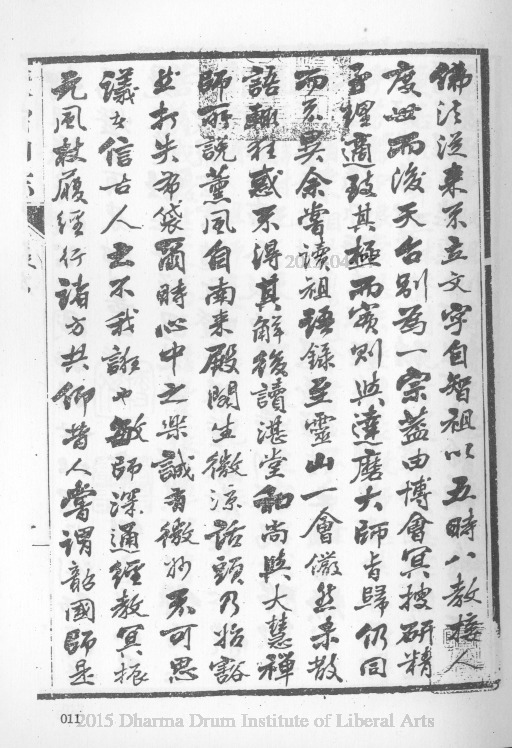 佛法從来不立文字自智祖以五時八教接人
度世而後天台别為一宗葢由博會冥搜研精
理適致其極而實則與達磨大師旨歸仍同
而不異余嘗讀祖語錄至靈山一會儼然未散
語輙狂惑不得其解後讀湛堂和尚與大慧禪
師所説薰風自南来殿閣生微涼話頭乃始豁
然打失布袋爾時心中之樂誠有微妙不可思
議者信古人不我誑也敏師深通經教冥振
元風杖履經行諸方共仰昔人嘗謂韶國師是
011
2015 Dharma Drum Institute of Liberal Arts